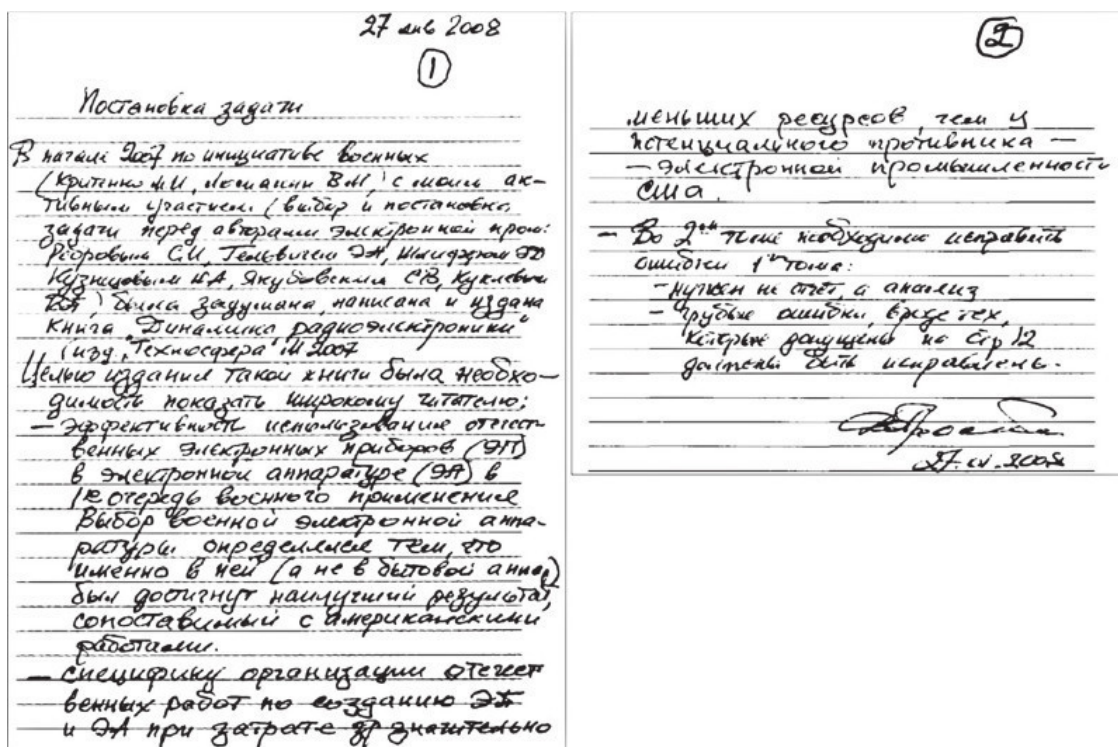 27 янв 2008
1
Постановка задачи
В начале 2007 по инициативе военных
(Критенко МИ, Лопатин ВМ) с моим ак-
тивным участием (выбор и постановка
задачи перед авторами электронной пром:
Ребровым СИ, Гельвичем ЭА, Шмидтом
Кузнецовым НА, Якубовским СВ, Куклевым
была задумана, написана и издана
книга „Динамика радиоэлектроники“
(изд „Техносфера“ М 2007
Целью издания такой книги была необхо-
димость показать широкому читателю:
— эффективность использования отечест
венных электронных приборов (ЭП)
в электронной аппаратуре (ЭА) в
1ю очередь военного применения
Выбор военной электронной аппа-
ратуры определялся тем, что
именно в ней (а не в бытовой аппар)
был достигнут наилучший результат,
сопоставимый с американскими
работами.
— специфику организации отечест
венных работ по созданию
и ЭА при затрате значительно
2
меньших ресурсов, чем у
потенциального противника —
— электронной промышленности
США.
— Во 2ом томе необходимо исправить
ошибки 1го тома:
— нужен не отчёт, а анализ
— грубые ошибки, вроде тех,
которые допущены на стр 12
должны быть исправлены.
2008